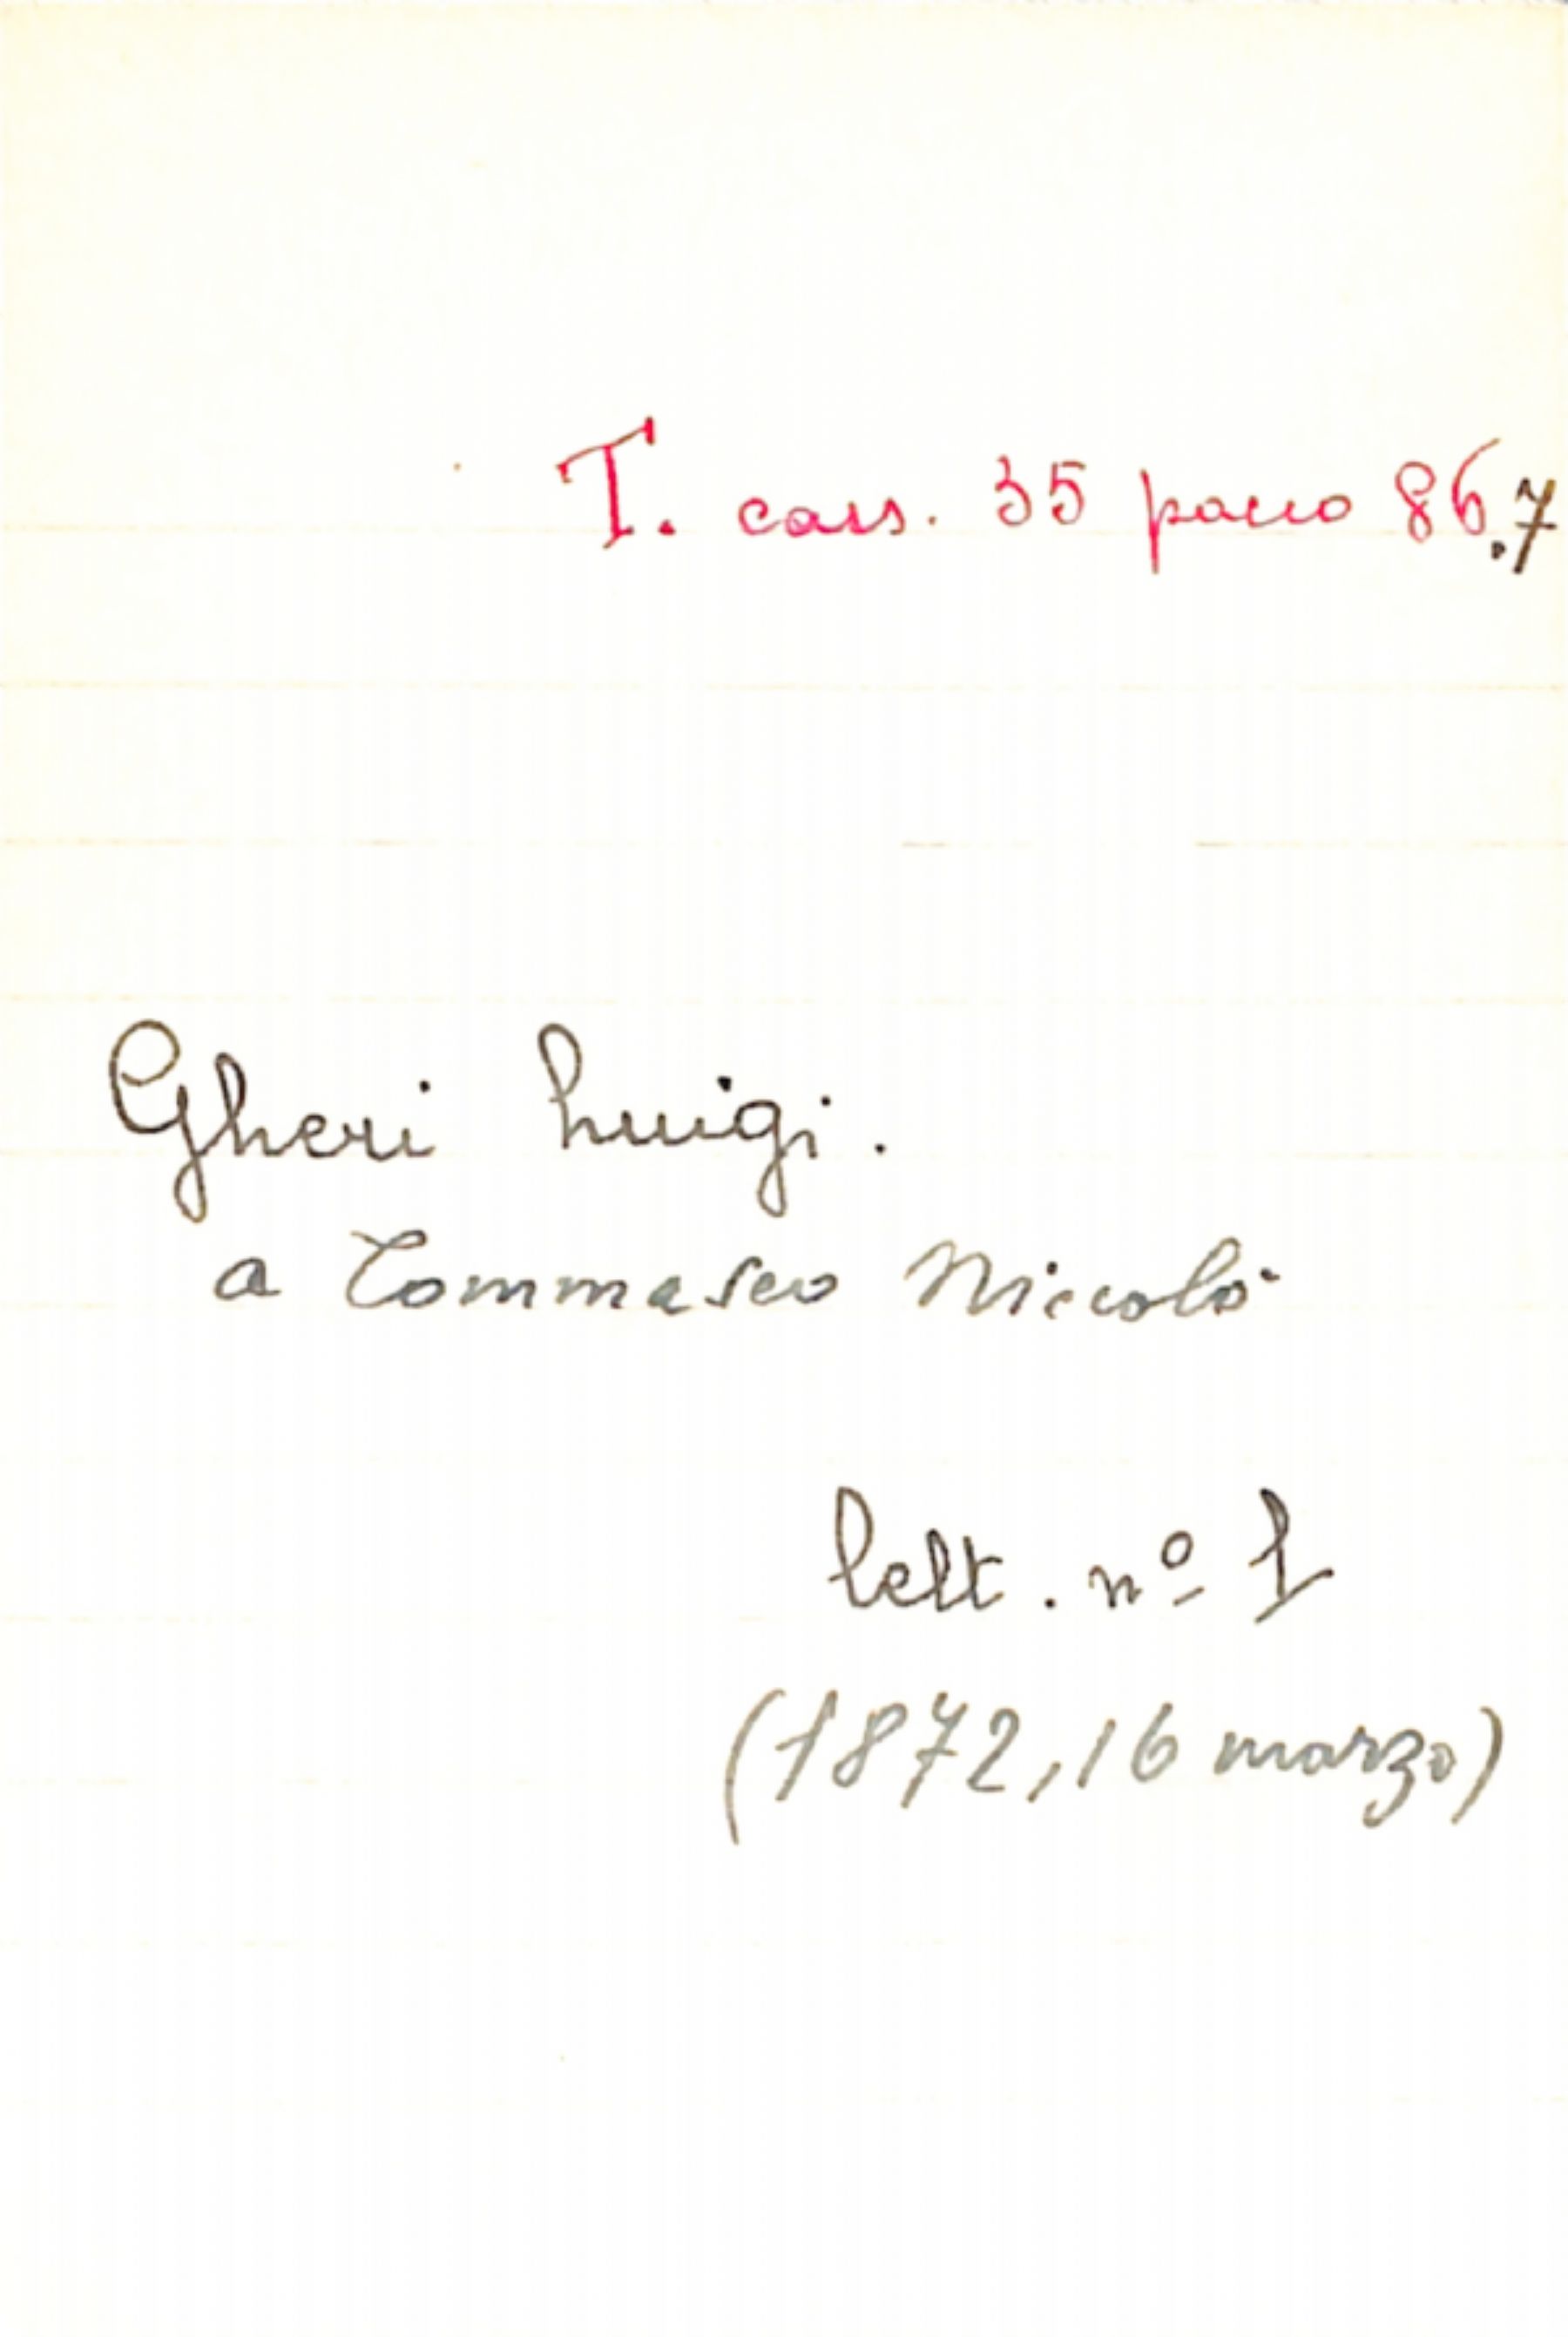 T. cass. 35 pacco 86.7
Gheri Luigi.
a Tommaseo Niccolò
lett. nº 1
(1872, 16 marzo)